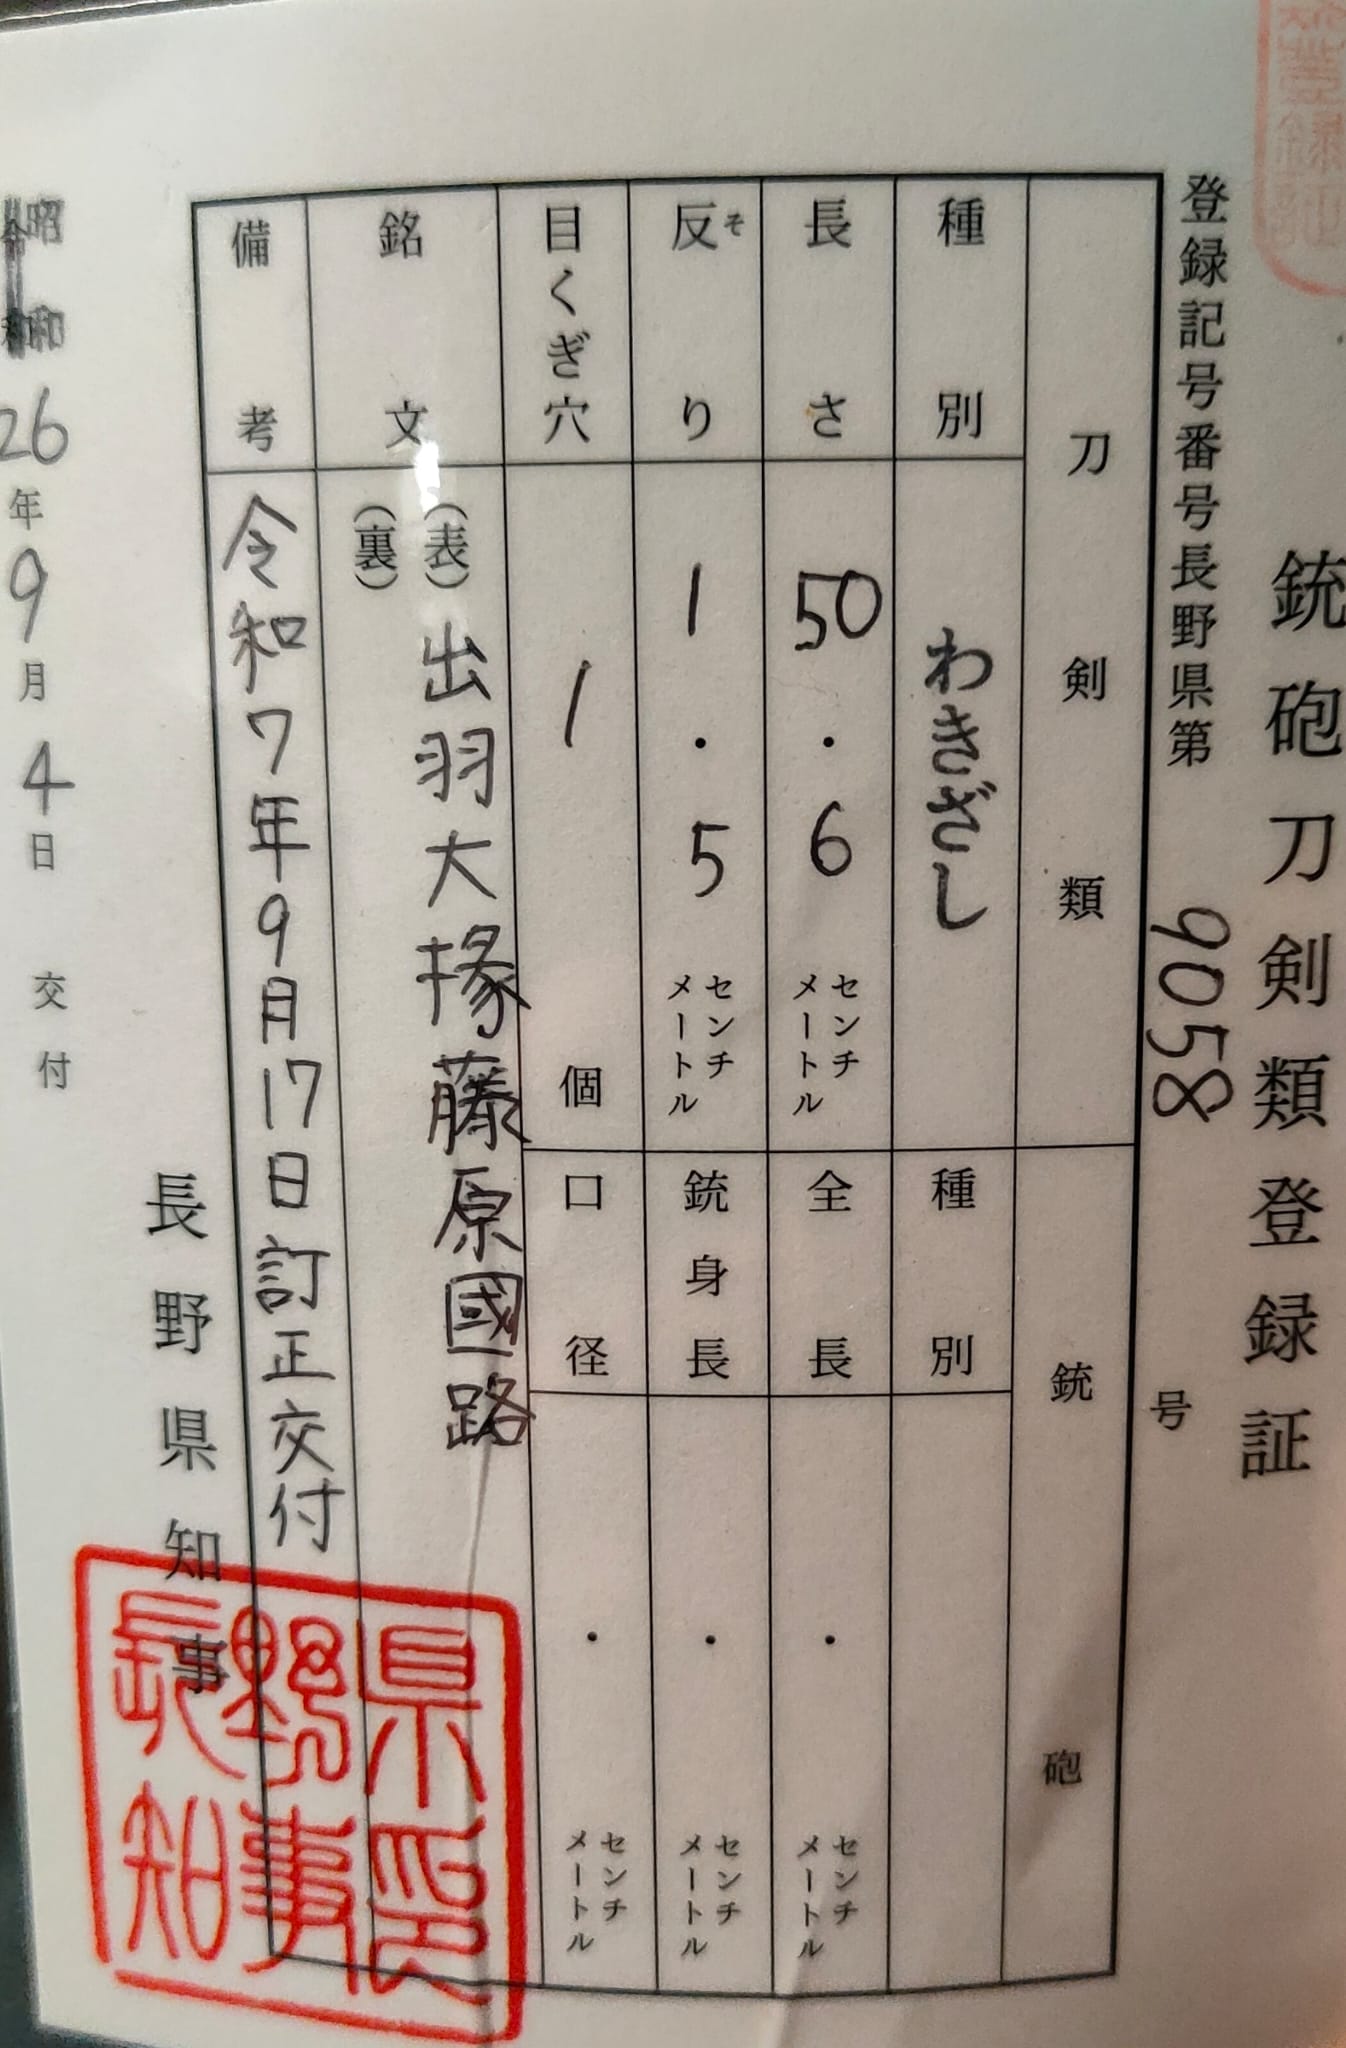 銃砲刀剣類登録証
登録記号番号長野県第 9058 号
刀剣類
種別 わきざし
長さ 50.6 センチメートル
反り そ 1.5 センチメートル
目くぎ穴 1 個
銘文 (表)出羽大掾藤原國路
(裏)
備考 令和7年9月17日訂正交付
銃砲
種別
全長 ・ センチメートル
銃身長 ・ センチメートル
口径 ・ センチメートル
昭和26年9月4日交付
長野県知事
長野県知事印